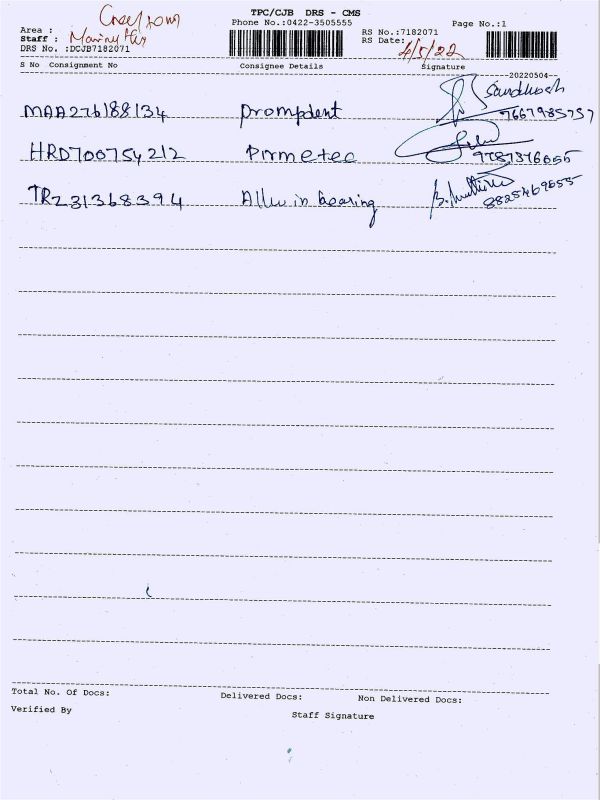 TPC/CJB DRS - CMS
Phone No.:0422-3505555
Page No.:1
Area :
Staff :
RS No.:7182071
RS Date: 4/5/22
DRS No. :DCJB7182071
S No Consignment No Consignee Details Signature
20220504
MAA276188134 Prompdent Sandhosh
7667985757
HRD700754212 Pirmetec
9787376055
TRZ31368394 Allwin bearing
8825469655
Total No. Of Docs: Delivered Docs: Non Delivered Docs:
Verified By Staff Signature